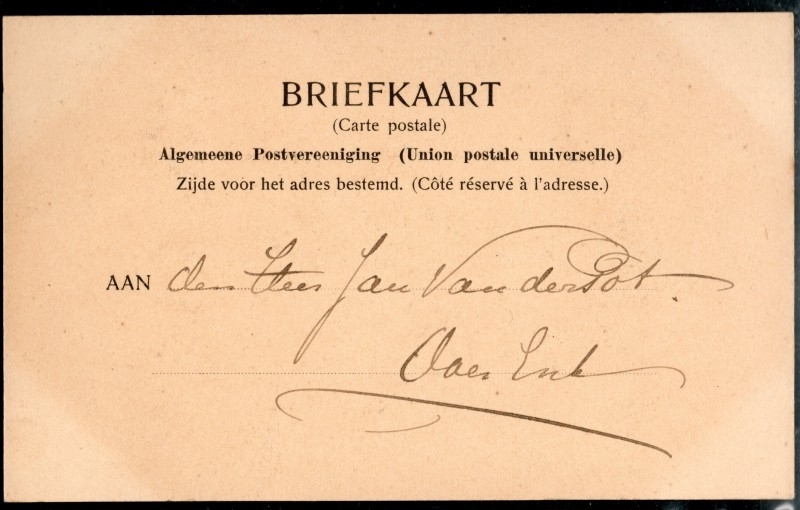 BRIEFKAART
(Carte postale)
Algemeene Postvereeniging (Union postale universelle)
Zijde voor het adres bestemd. (Côté réservé à l'adresse.)
AAN den Heer Jan Van der Pot.